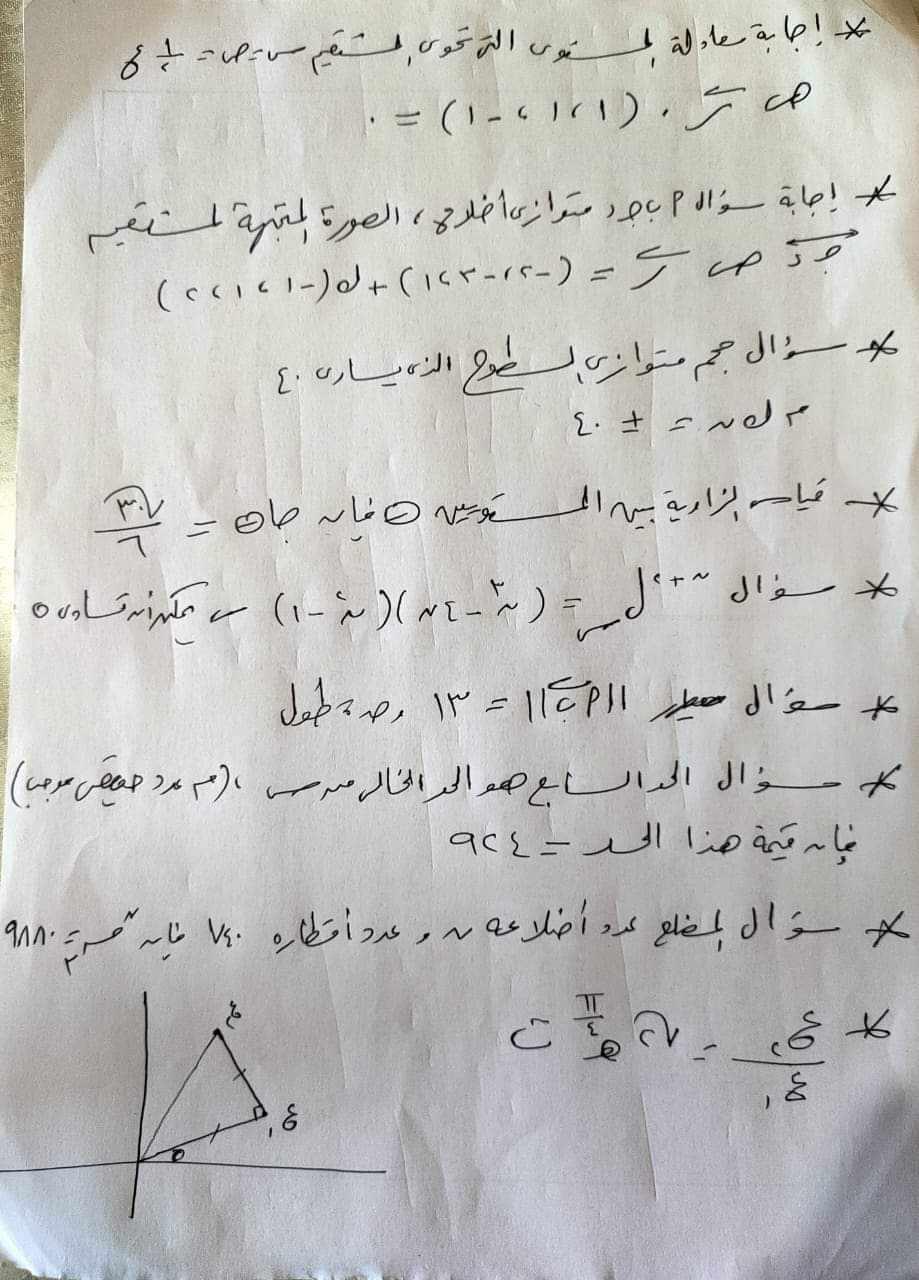 * إجابة معادلة المستوى التى تحوى المستقيم س = ص = ١/٢ ع
هى ر⃗ . (١ ، ١ ، -١) = ٠
* إجابة سؤال أ ب ج د متوازى أضلاع ، الصورة المتجهة للمستقيم
ج د هى ر⃗ = (-٢ ، -٣ ، ١) + ك (-١ ، ١ ، ٢)
* سؤال حجم متوازى السطوح الذى يساوى ٤٠
م ك ن = ± ٤٠
* قياس الزاوية بين المستويين θ فإن جا θ = √٣٠/٦
* سؤال ن+٢ل = (ن٣ - ٤ن)(ن٢ - ١) س يمكن أن تساوى ٥
* سؤال ||أ ب|| = ١٣ وحدة طول
* سؤال الحد السابع هو الحد الخالى من س ، (م عدد حقيقى موجب)
فإن قيمة هذا الحد = ٩٢٤
* سؤال المضلع عدد أضلاعه ن و عدد أقطاره ٧٤٠ فإن نق٣ = ٩٨٨٠
* ع٢/ع١ = √٢ هـ π/٤ ت
ع٢
ع١
θ